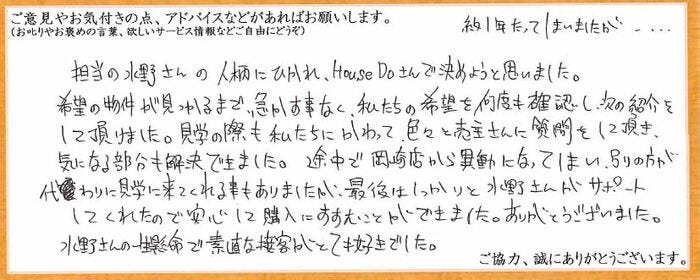 ご意見やお気付きの点、アドバイスなどがあればお願いします。
(お叱りやお褒めの言葉、欲しいサービス情報などご自由にどうぞ)
約1年たってしまいましたが....
担当の水野さんの人柄にひかれ、House Doさんで決めようと思いました。
希望の物件が見つかるまで、急かす事なく、私たちの希望を何度も確認し、次の紹介を
して頂けました。見学の際も私たちにかわって、色々と売主さんに質問をして頂き、
気になる部分も解決できました。途中で岡崎店から異動になってしまい、別りの方が
代わりに見学に来てくれる事もありましたが、最後はしっかりと水野さんがサポート
してくれたので安心して購入にすすむことができました。ありがとうございました。
水野さんの一生懸命で素直な接客がとても好きでした。
ご協力、誠にありがとうございます。